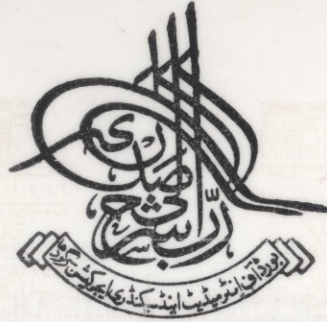 رَبِّ اشرح لی صدری
بورڈ آف انٹرمیڈیٹ اینڈ سیکنڈری ایجوکیشن سرگودھا